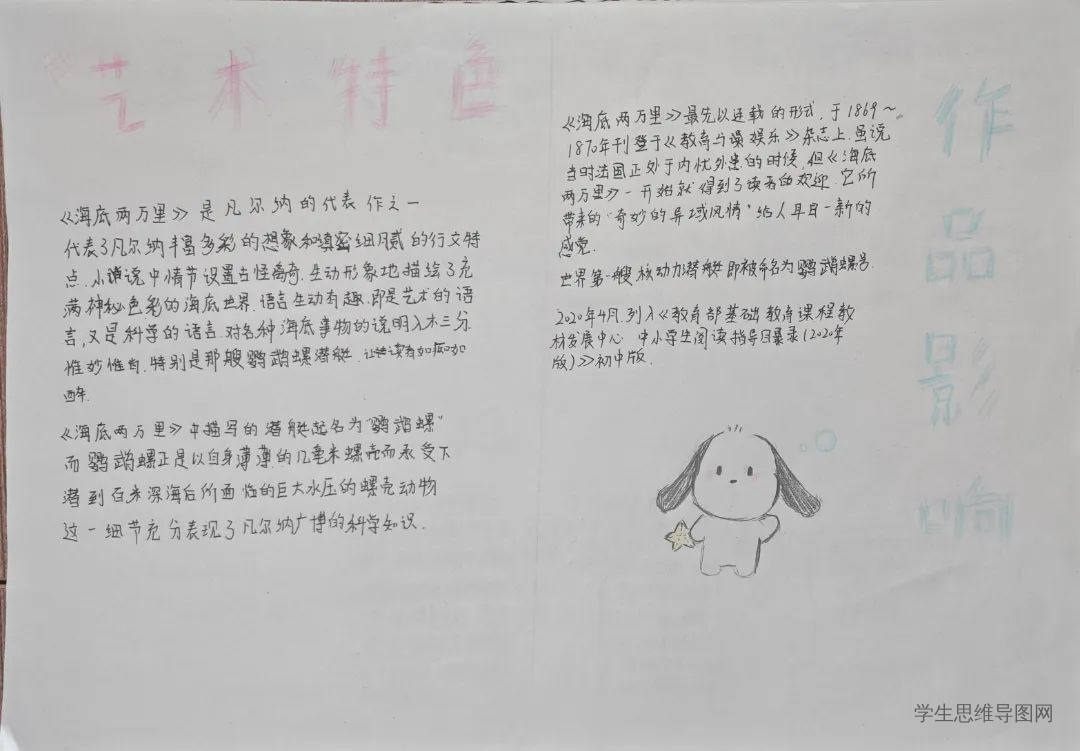 艺术特色
《海底两万里》是凡尔纳的代表作之一
代表了凡尔纳丰富多彩的想象和缜密细腻的行文特
点.小说中情节设置古怪离奇.生动形象地描绘了充
满神秘色彩的海底世界.语言生动有趣.即是艺术的语
言,又是科学的语言.对各种海底事物的说明入木三分.
惟妙惟肖.特别是那艘鹦鹉螺潜艇.让读者如痴如
醉.
《海底两万里》中描写的潜艇起名为"鹦鹉螺"
而鹦鹉螺正是以自身薄薄的几毫米螺壳而承受下
潜到百米深海后所面临的巨大水压的螺壳动物
这一细节充分表现了凡尔纳广博的科学知识.
作品影响
《海底两万里》最先以连载的形式,于1869~
1870年刊登于《教育与娱乐》杂志上.虽说
当时法国正处于内忧外患的时候,但《海底
两万里》一开始就得到了读者的欢迎.它所
带来的"奇妙的异域风情"给人耳目一新的
感觉.
世界第一艘核动力潜艇即被命名为鹦鹉螺号.
2020年4月.列入《教育部基础教育课程教
材发展中心 中小学生阅读指导目录(2020年
版)》初中版.
学生思维导图网